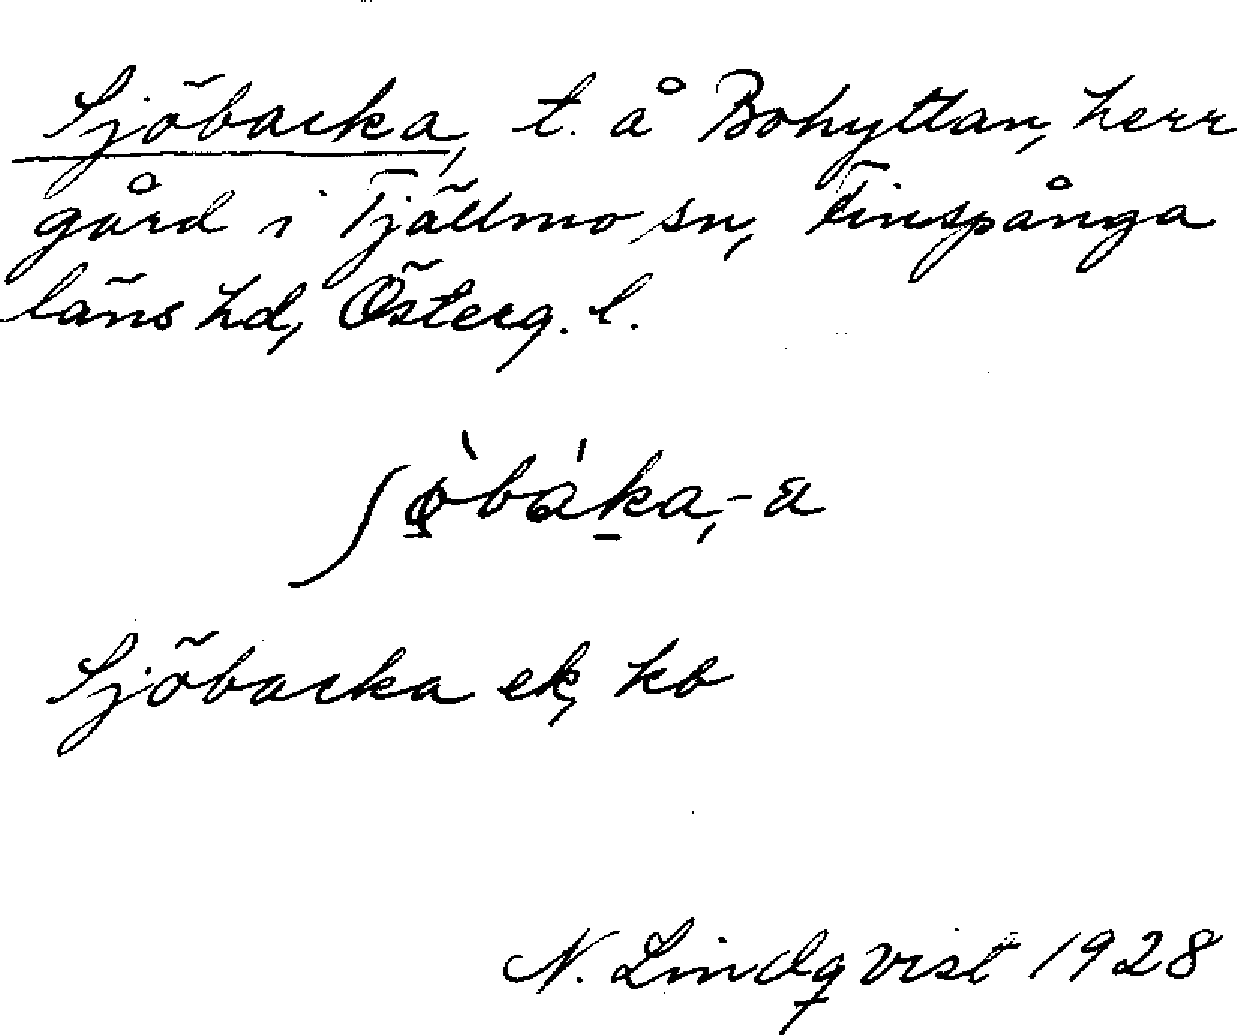 Sjöbacka, t. å Bohyttan, herr
gård i Tjällmo sn, Finspånga
läns hd, Österg. l.
Sjöbacka ek, kb
N. Lindqvist 1928